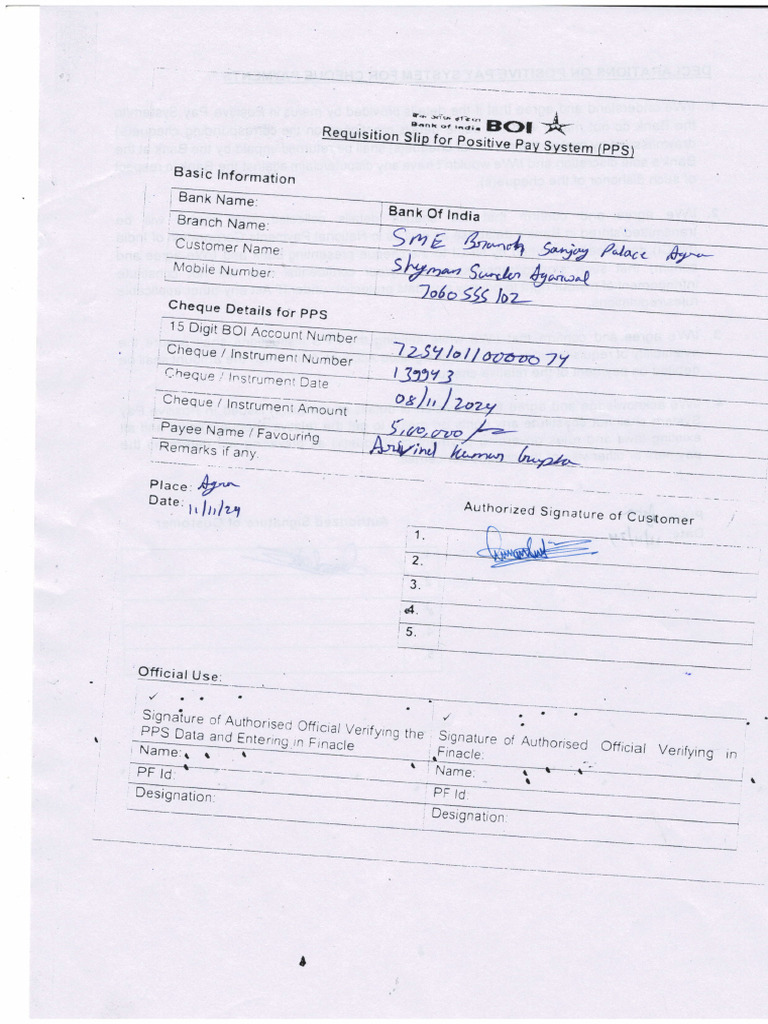 बैंक ऑफ़ इंडिया
Bank of India BOI
Requisition Slip for Positive Pay System (PPS)
Basic Information
Bank Name: Bank Of India
Branch Name: SME Branch Sanjay Palace Agra
Customer Name: Shyman Sunder Agarwal
Mobile Number: 7060555102
Cheque Details for PPS
15 Digit BOI Account Number 725410110000074
Cheque / Instrument Number 139943
Cheque / Instrument Date 08/11/2024
Cheque / Instrument Amount 5,00,000/-
Payee Name / Favouring Arivind Kumar Gupta
Remarks if any.
Place: Agra
Date: 11/11/24
Authorized Signature of Customer
1.
2.
3.
4.
5.
Official Use:
✓
Signature of Authorised Official Verifying the
PPS Data and Entering in Finacle
Name:
PF Id:
Designation:
✓
Signature of Authorised Official Verifying in
Finacle:
Name:
PF Id:
Designation: